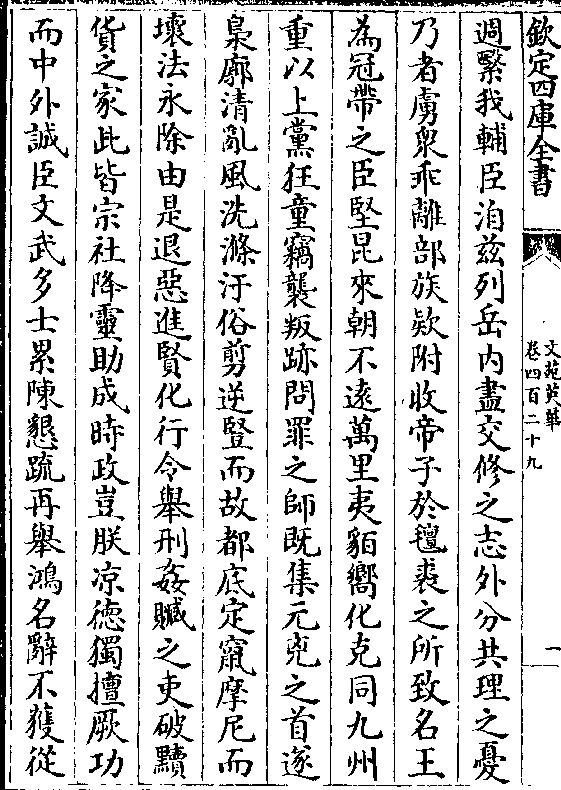 欽定四庫全書
文苑英華
卷四百二十九
一
週繄我輔臣洎兹列岳内盡交修之志外分共理之憂
乃者虜衆乖離部族欵附收帝子於氊裘之所致名王
為冠帶之臣堅昆來朝不遠萬里夷貊嚮化克同九州
重以上黨狂童竊襲叛跡問罪之師既集元兇之首遂
梟廓清亂風洗滌汙俗剪逆豎而故都底定竄摩尼而
壞法永除由是退惡進賢化行令舉刑姦贓之吏破黷
貨之家此皆宗社降靈助成時政豈朕凉徳獨擅厥功
而中外誠臣文武多士累陳懇䟽再舉鴻名辭不獲從